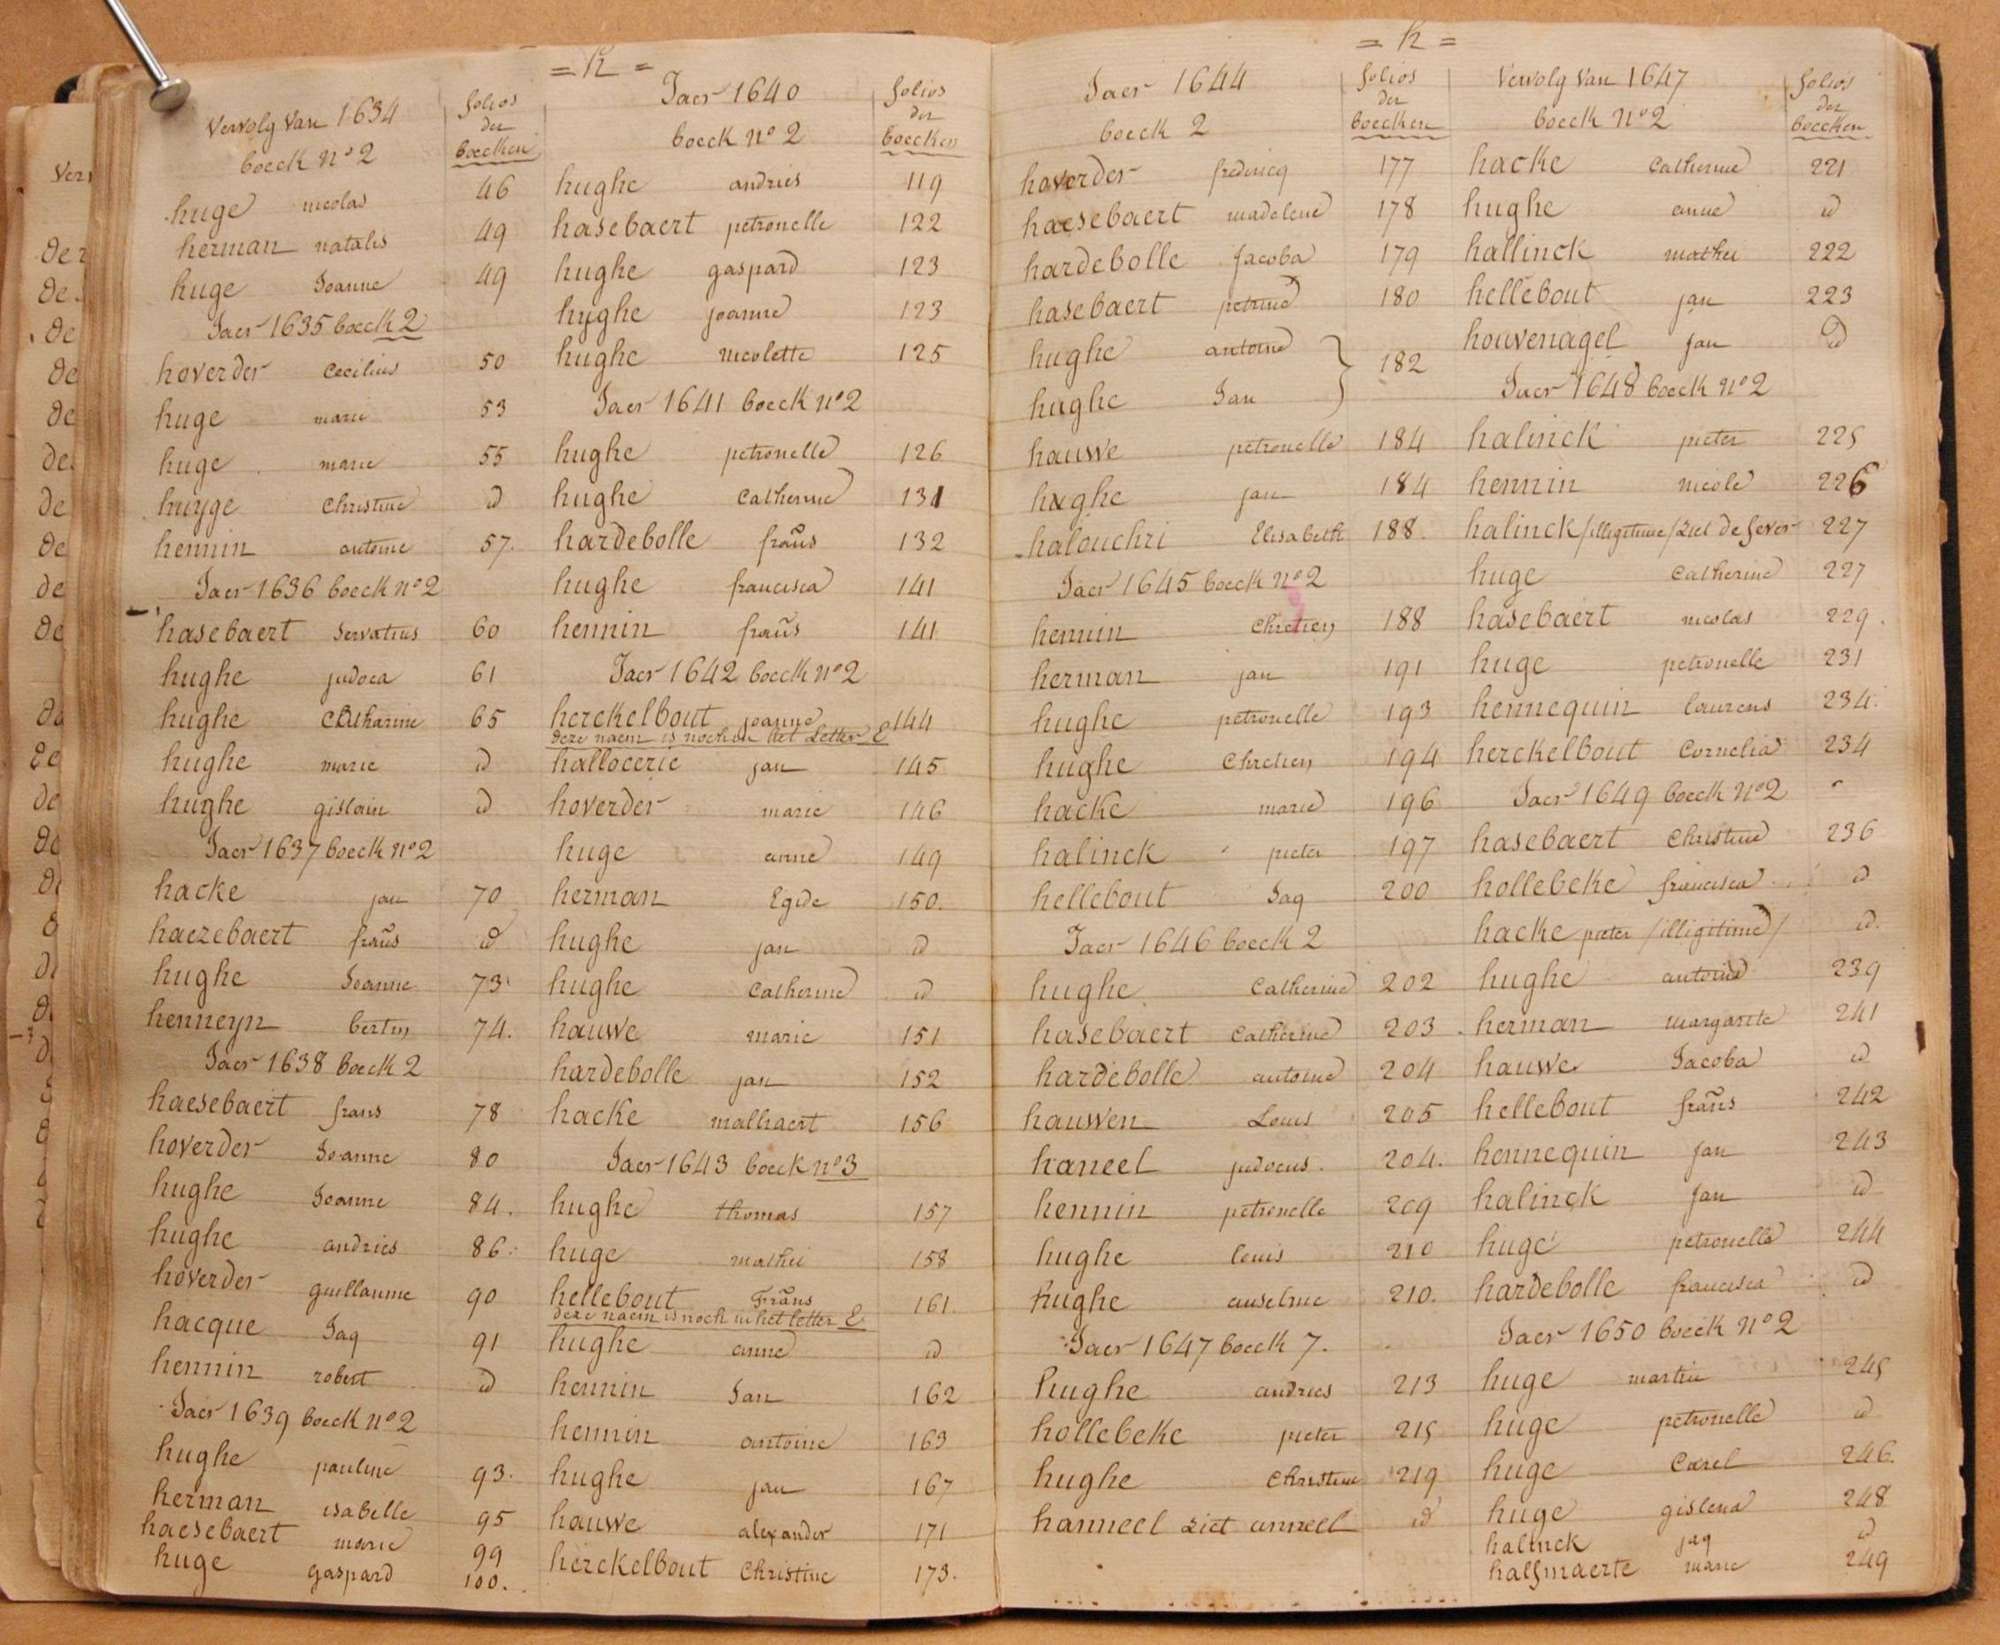 = h =
Vervolg Van 1634
boeck nº 2
folios
der
boecken
huge nicolas 46
herman natalis 49
huge Joanne 49
Jaer 1635 boeck 2
hoverder Cecilius 50
huge marie 53
huge marie 55
huyge Christine id
hennin antoine 57.
Jaer 1636 boeck nº 2
hasebaert Servatius 60
hughe judoca 61
hughe Catharine 65
hughe marie id
hughe gislain id
Jaer 1637 boeck nº 2
hacke jan 70
haezebaert frañs id
hughe Joanne 73
henneyn bertin 74.
Jaer 1638 boeck 2
haesebaert frans 78
hoverder Joanne 80
hughe Joanne 84.
hughe andries 86.
hoverder guillaume 90
hacque Jaq 91
hennin robert id
Jaer 1639 boeck nº 2
hughe pauline 93.
herman isabelle 95
haesebaert marie 99
huge gaspard 100.
Jaer 1640
boeck nº 2
folios
der
boecken
hughe andries 119
hasebaert petronelle 122
hughe gaspard 123
hughe joanne 123
hughe nicolette 125
Jaer 1641 boeck nº 2
hughe petronelle 126
hughe Catherine 131
hardebolle frañs 132
hughe francisca 141
hennin frañs 141
Jaer 1642 boeck nº 2
herckelbout joanne 144
deze naem is noch in het Letter E
hallocerie jan 145
hoverder marie 146
huge anne 149
herman Egide 150.
hughe jan id
hughe Catherine id
hauwe marie 151
hardebolle jan 152
hacke malhaert 156
Jaer 1643 boeck nº 3
hughe thomas 157
huge mathei 158
hellebout Frañs 161.
deze naem is noch in het letter E
hughe anne id
hennin Jan 162
hennin antoine 163
hughe jan 167
hauwe alexander 171
herckelbout Christine 173.
= h =
Jaer 1644
boeck 2
folios
der
boecken
hoverder fredericq 177
haesebaert madelene 178
hardebolle Jacoba 179
hasebaert petrine 180
hughe antoine }
hughe Jan } 182
hauwe petronelle 184
hughe jan 184
halouchri Elisabeth 188.
Jaer 1645 boeck nº 2
hennin Chretien 188
herman jan 191
hughe petronelle 193
hughe Chretien 194
hacke marie 196
halinck pieter 197
hellebout Jaq 200
Jaer 1646 boeck 2
hughe Catherine 202
hasebaert Catherine 203
hardebolle antoine 204
hauwen Louis 205
haneel judocus 204.
hennin petronelle 209
hughe louis 210
hughe anselme 210.
Jaer 1647 boeck 7.
hughe andries 213
hollebeke pieter 215
hughe Christine 219
hanneel ziet anneel id
Vervolg Van 1647
boeck Nº 2
folios
der
boecken
hacke Catherine 221
hughe anne id
hallinck mathei 222
hellebout jan 223
houvenagel jan id
Jaer 1648 boeck nº 2
halinck pieter 225
hennin nicole 226
halinck /illigitime/ ziet de fever 227
huge Catherine 227
hasebaert nicolas 229.
huge petronelle 231
hennequin laurens 234.
herckelbout Cornelia 234
Jaer 1649 boeck nº 2
hasebaert Christine 236
hollebeke francisca id
hacke pieter /illigitime/ id.
hughe antoine 239
herman margarite 241
hauwe Jacoba id
hellebout frañs 242
hennequin jan 243
halinck jan id
huge petronelle 244
hardebolle francisca id
Jaer 1650 boeck nº 2
huge martin 245
huge petronelle id
huge Carel 246.
huge gislena 248
halinck jaq id
halsmaerte marie 249